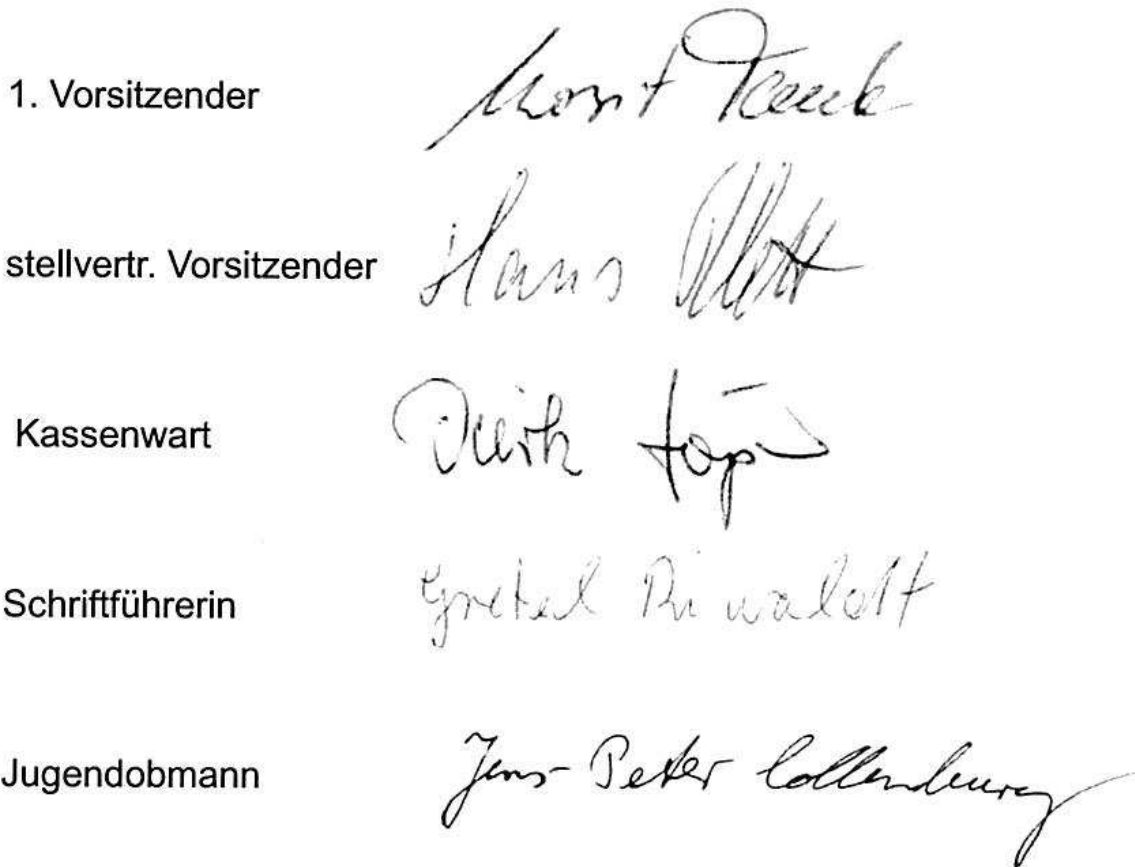 1. Vorsitzender Horst
stellvertr. Vorsitzender Hans
Kassenwart Dierk
Schriftführerin Gretel
Jugendobmann Jens-Peter Collenburg